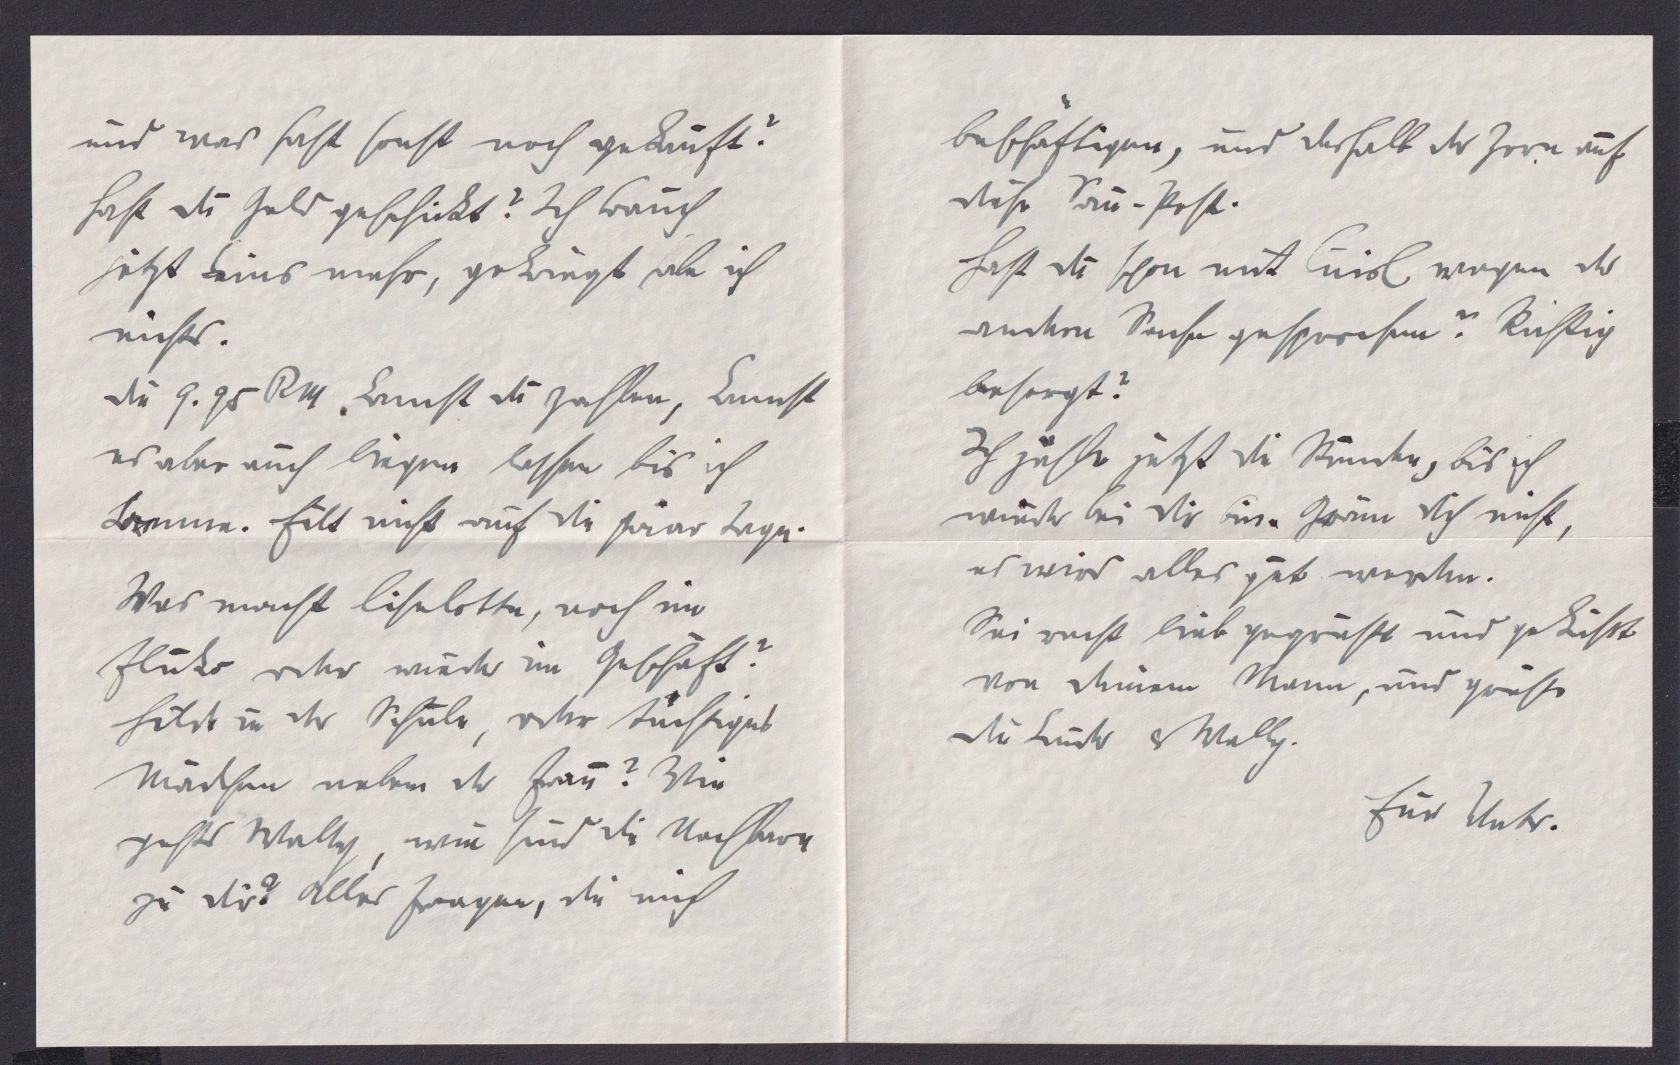 und was hast sonst noch gekauft?
Hast du Geld geschickt? Ich brauch
jetzt keins mehr, gekriegt habe ich
nichts.
Die 9.95 RM kannst du zahlen, kannst
es aber auch liegen lassen bis ich
komme. Eilt nicht auf die paar Tage.
Was macht Liselotte, noch im
oder wieder im Geschäft?
Hilde in der Schule, oder tüchtiges
Mädchen neben der Frau? Wie
gehts Wally, wie sind die Nachbarn
zu dir? Alles Fragen, die mich
beschäftigen, und deshalb der Zorn auf
diese Sau-Post.
Hast du schon mit wegen der
andern Sache gesprochen? Richtig
besorgt?
Ich zähle jetzt die Stunden, bis ich
wieder bei dir bin. Gräm dich nicht,
es wird alles gut werden.
Sei recht lieb gegrüßt und geküßt
von deinem Mann, und grüße
die Kinder & Wally.
Eur Vater.